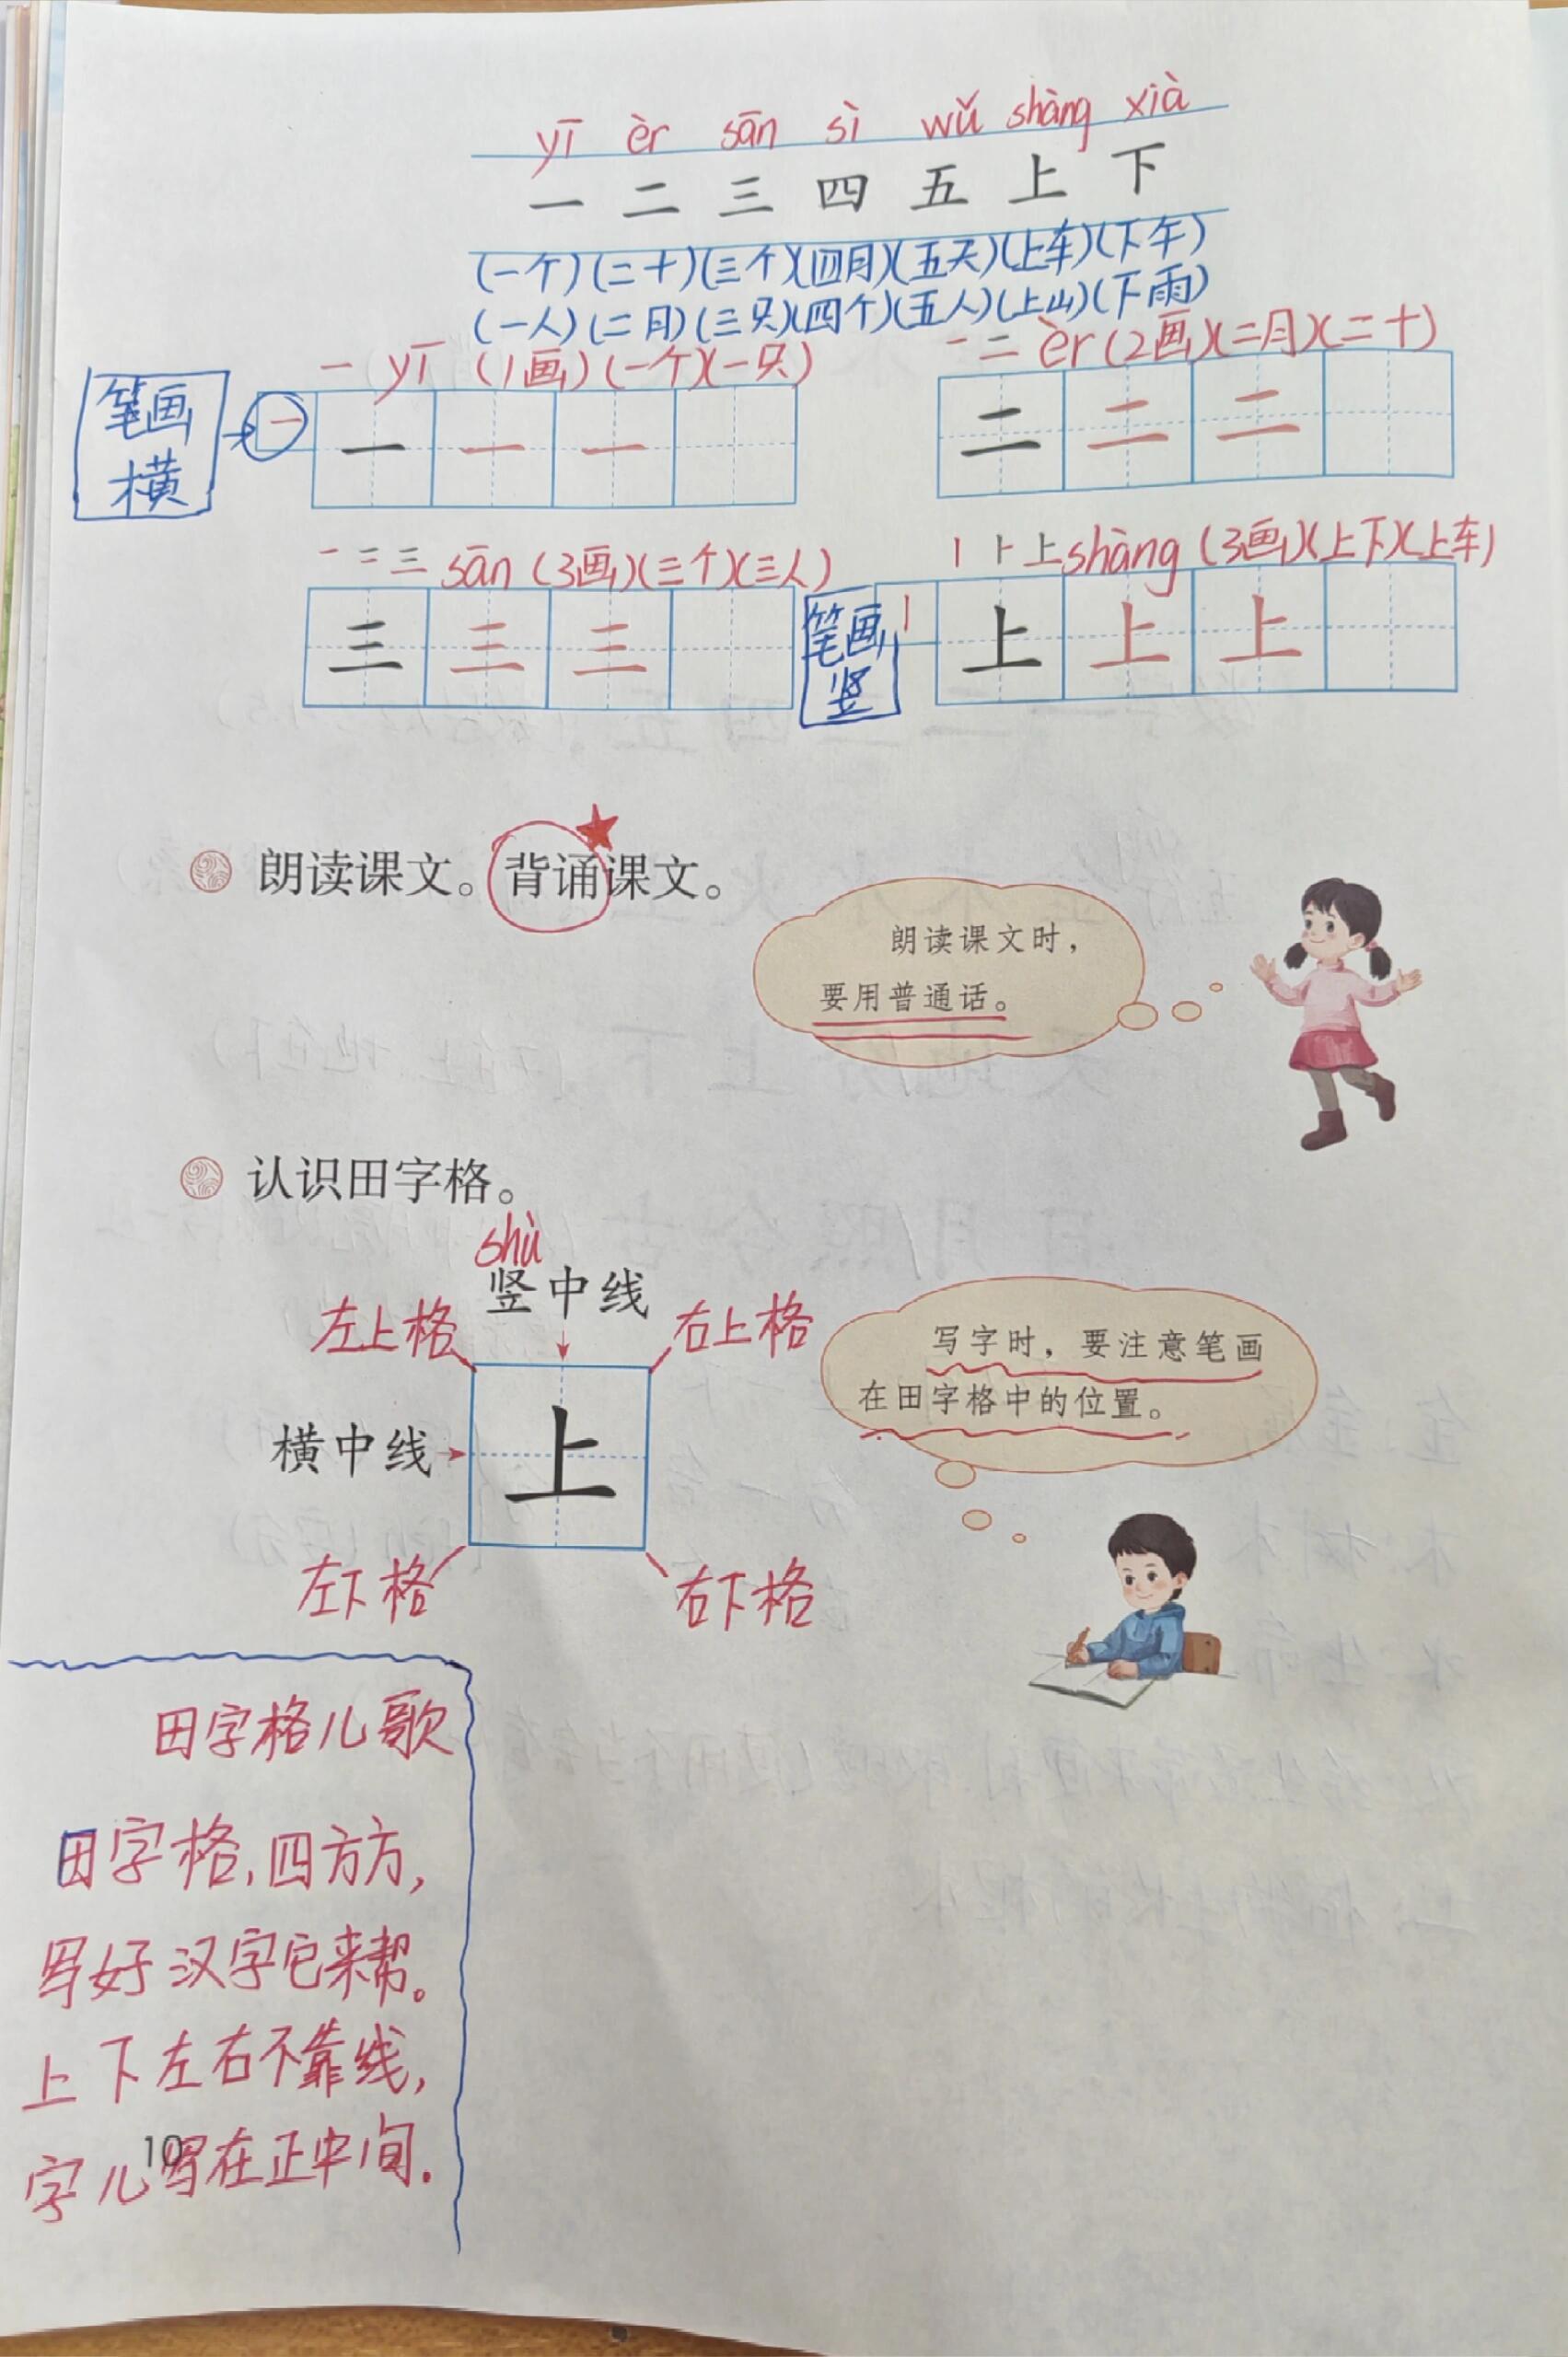 yī èr sān sì wǔ shàng xià
一 二 三 四 五 上 下
(一个)(二十)(三个)(四月)(五天)(上车)(下午)
(一人)(二月)(三只)(四个)(五人)(上山)(下雨)
一 yī (1画)(一个)(一只)
一 二 èr (2画)(二月)(二十)
笔画
横
一 一 一 一
二 二 二
一 二 三 sān (3画)(三个)(三人)
丨 ⺊ 上 shàng (3画)(上下)(上车)
三 三 三
笔画
竖
丨 上 上 上
朗读课文。背诵课文。
朗读课文时，
要用普通话。
认识田字格。
shù
竖中线
左上格
右上格
横中线
上
左下格
右下格
写字时，要注意笔画
在田字格中的位置。
田字格儿歌
田字格,四方方,
写好汉字它来帮。
上下左右不靠线,
字儿写在正中间.
10